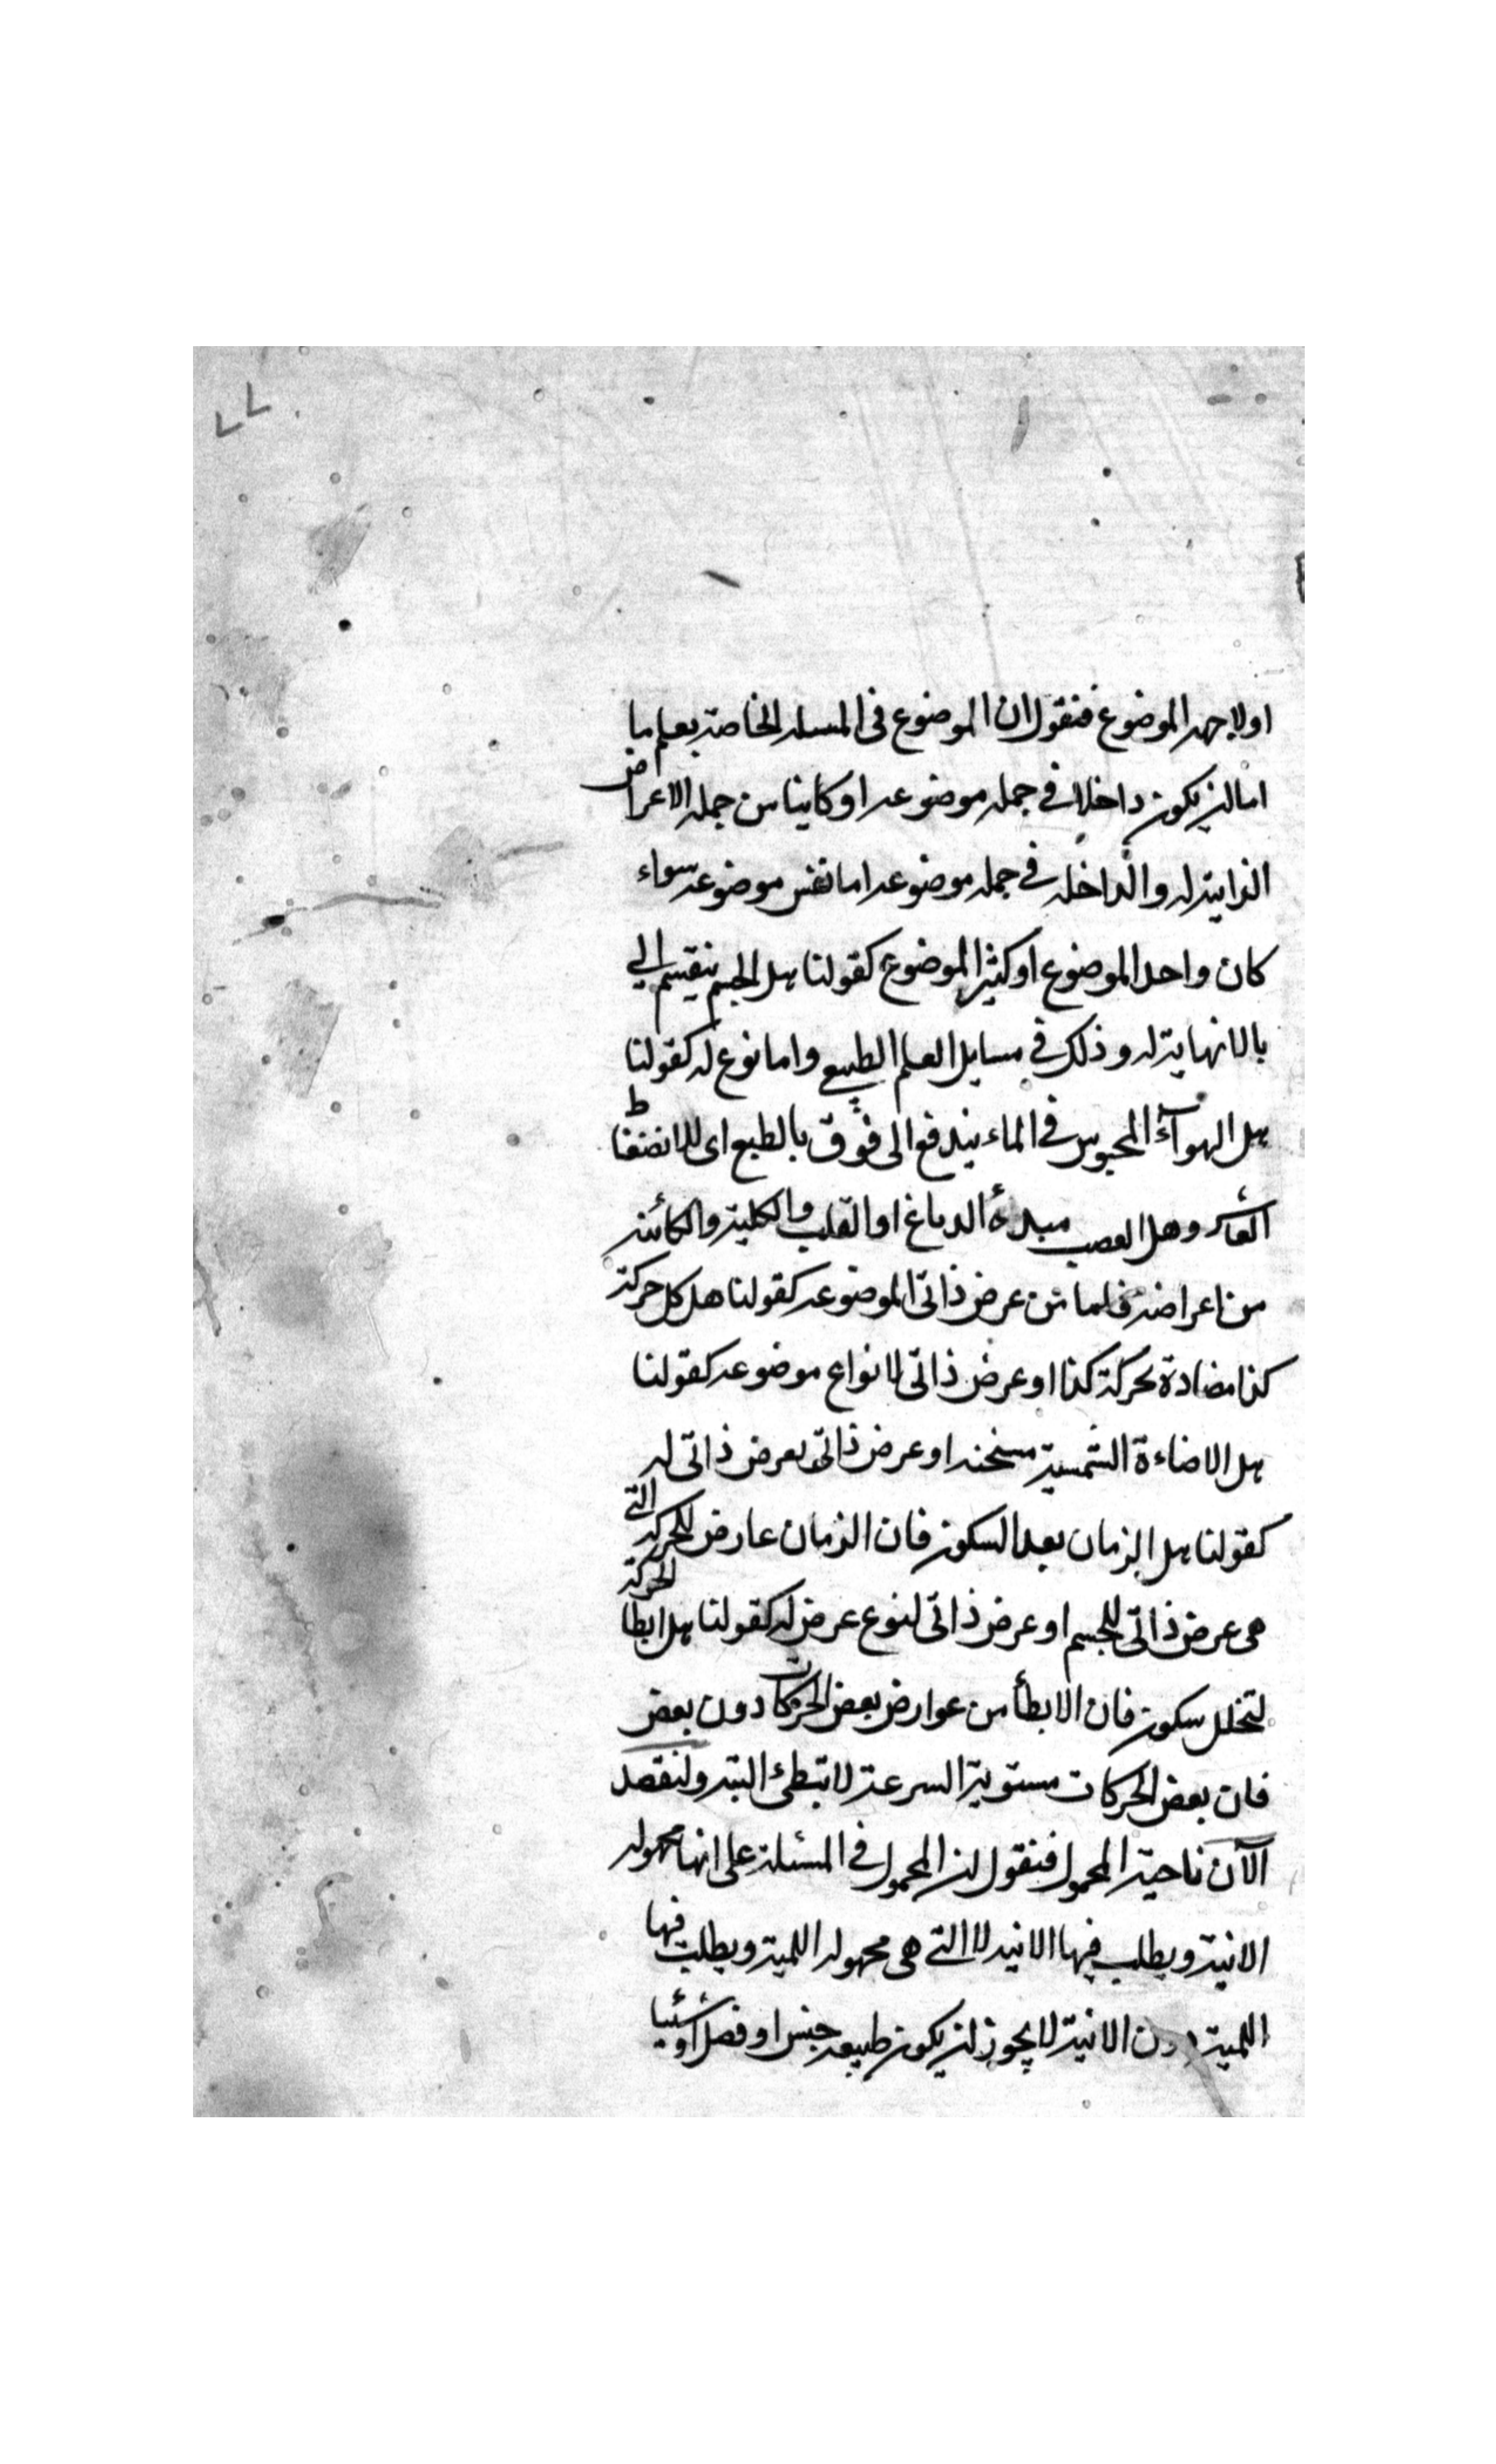 ٧٧
اولا جهه الموضوع فنقول ان الموضوع فى المسله الخاصة بعلم ما
اما ان يكون داخلا فى جمله موضوعه او كاينا من جمله الاعراض
الذاتية له والداخله فى جمله موضوعه اما نفس موضوعه سواء
كان واحد الموضوع او كثير الموضوع كقولنا هل الجسم ينقسم الى
بالانهاية له وذلك فى مسايل العلم الطبيعى واما نوع له كقولنا
هل الهوآء المحبوس فى الماء يندفع الى فوق بالطبع اى للانضغاط
القاسر وهل العصب مبدؤه الدماغ او القلب والكلية والكائنة
من اعراضه فلما من عرض ذاتى لموضوعه كقولنا هل كل حركة
كذا مضادة لحركة كذا او عرض ذاتى لانواع موضوعه كقولنا
هل الاضاءة الشمسية مسخنه او عرض ذاتى لعرض ذاتى له
كقولنا هل الزمان بعد السكون فان الزمان عارض للحركه التى
هى عرض ذاتى للجسم او عرض ذاتى لنوع عرض له كقولنا هل ابطا الحركة
لتخلل سكون فان الابطأ من عوارض بعض الحركات دون بعض
فان بعض الحركات مستوية السرعة لا تبطئ البته ولنقصد
الآن ناحية المحمول فنقول ان المحمول فى المسئلة على انها مجهوله
الانية ويطلب فيها الانيه لا التى هى مجهوله اللمية ويطلب فيها
اللمية دون الانية لا يجوز ان يكون طبيعه جنس او فصل او شيئا